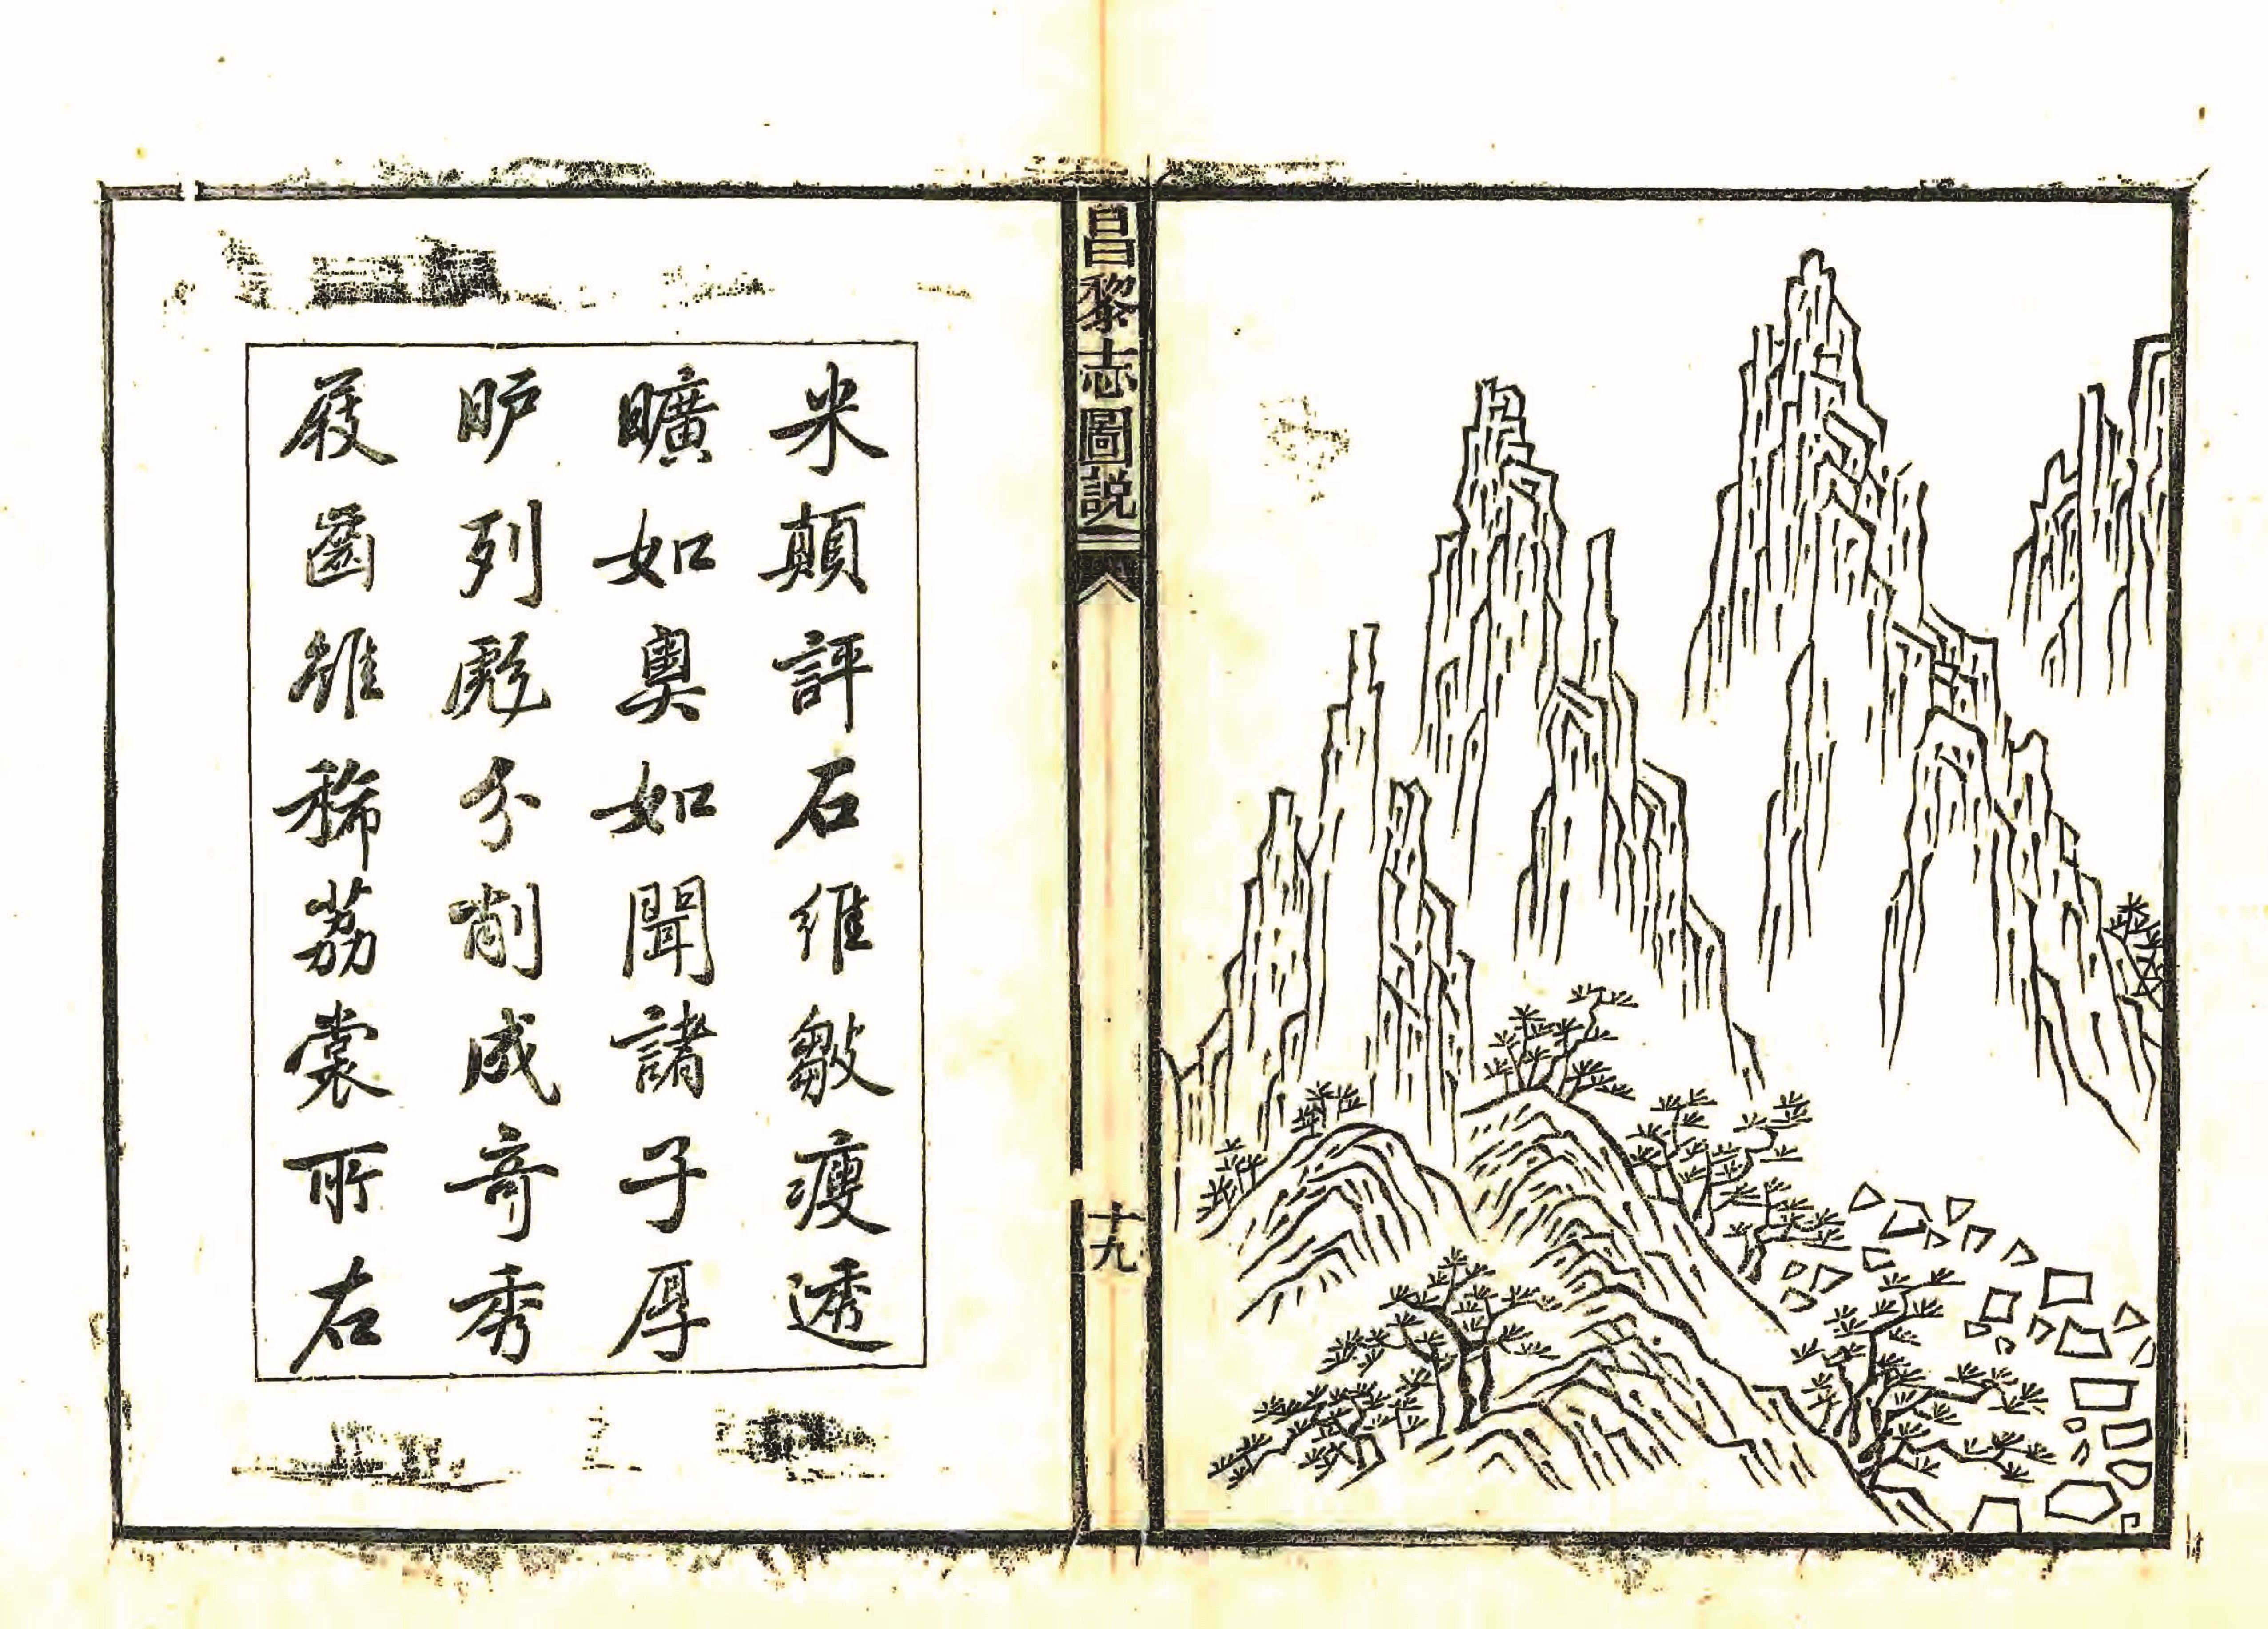 昌黎志圖説
十九
米顛評石維皺瘦透
曠如奧如聞諸子厚
昈列彪分削成奇秀
屐齒雖稀荔裳所右